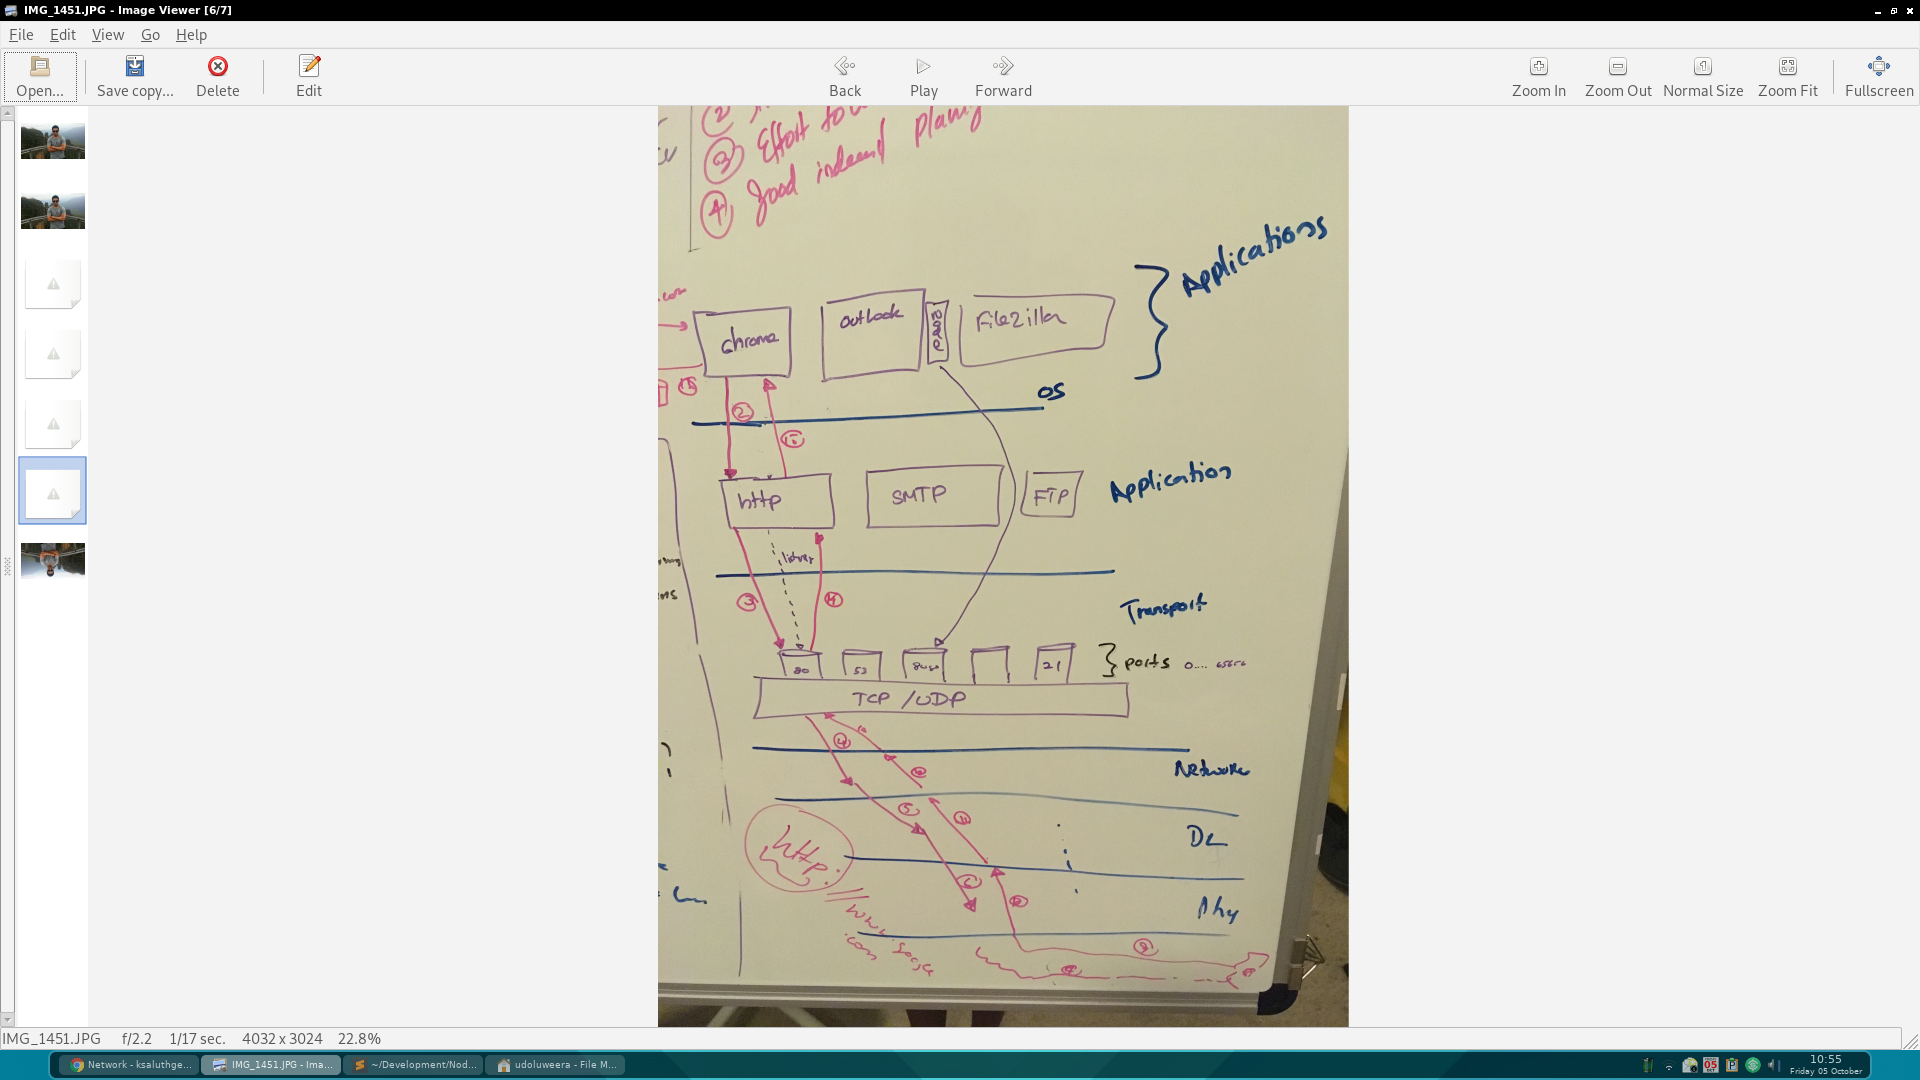 IMG_1451.JPG - Image Viewer [6/7]
File Edit View Go Help
Open... Save copy... Delete Edit Back Play Forward Zoom In Zoom Out Normal Size Zoom Fit Fullscreen
②
③ Effort to
④ good planing
Applications
.com
chrome
outlook
FileZilla
OS
②
http
SMTP
FTP
Application
listener
③
Transport
80
53
21
ports
TCP /UDP
④
Network
⑤
DL
http://
www.google
.com
⑥
Phy
⑨
IMG_1451.JPG f/2.2 1/17 sec. 4032 x 3024 22.8%
Network - ksaluthge... IMG_1451.JPG - Ima... ~/Development/Nod... udoluweera - File M...
10:55
Friday 05 October